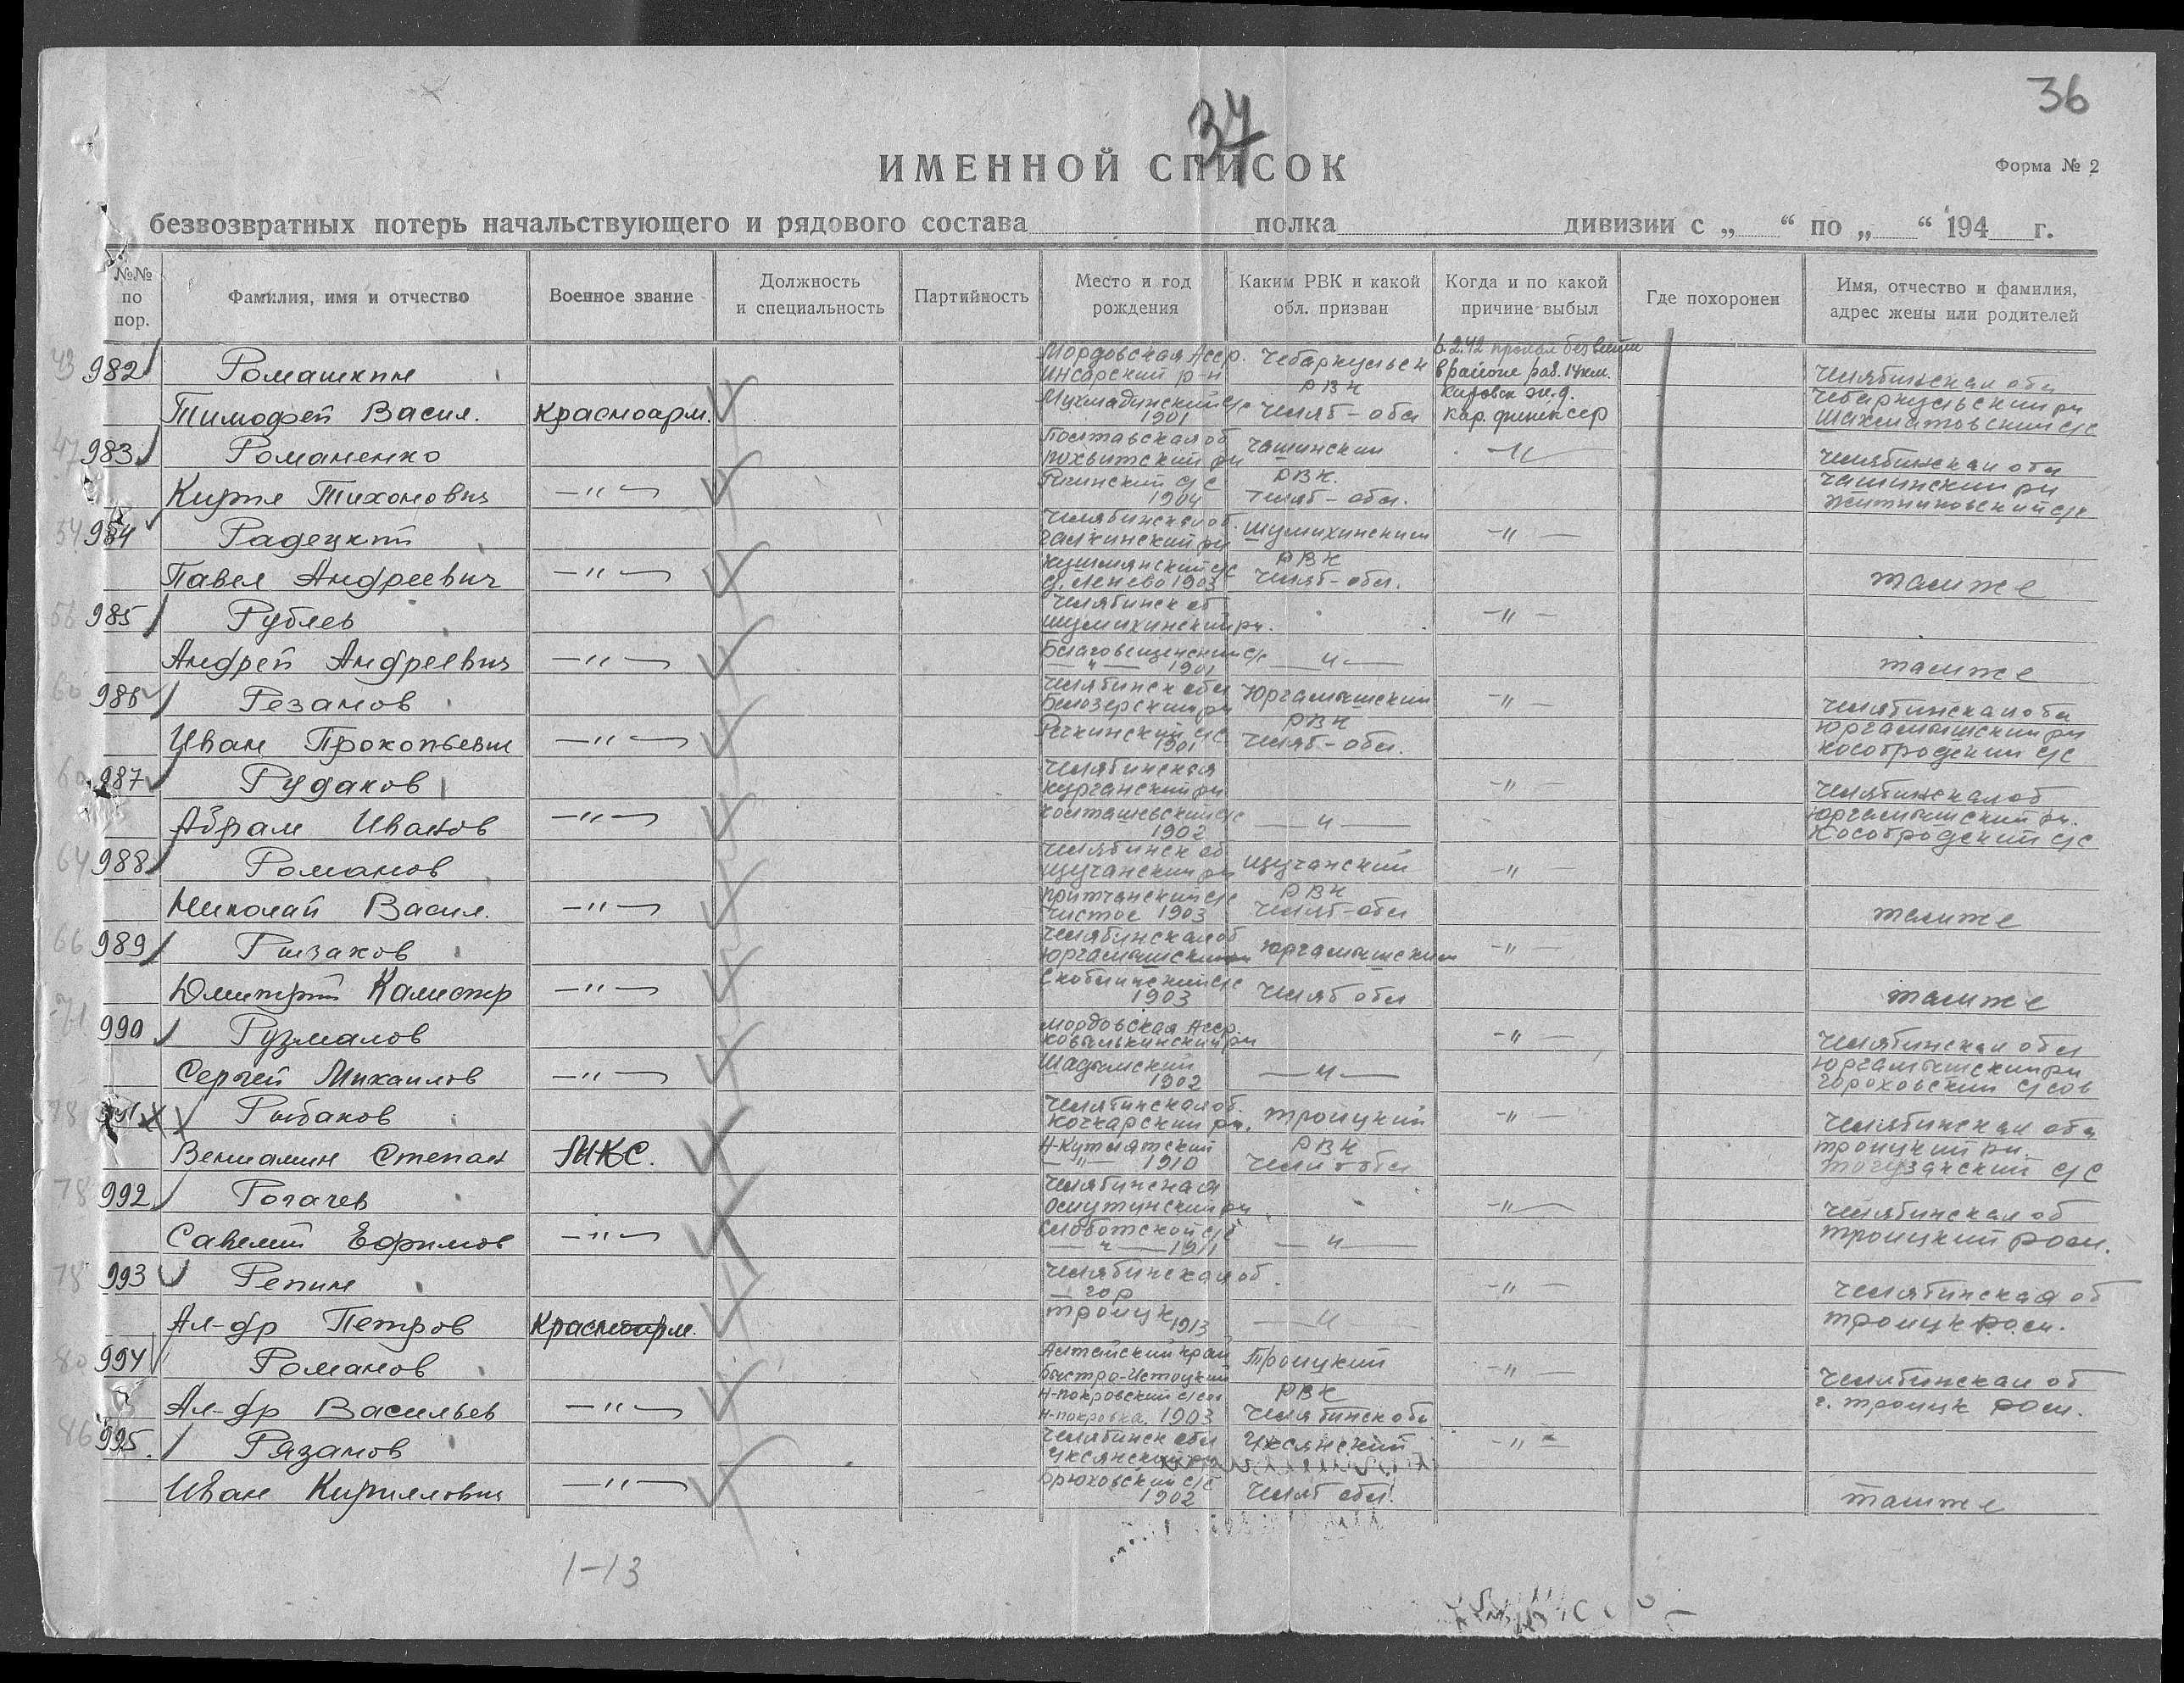 36
37
ИМЕННОЙ СПИСОК
Форма № 2
безвозвратных потерь начальствующего и рядового состава полка дивизии с „ “ по „ “ 194 г.
№№ по пор.
Фамилия, имя и отчество
Военное звание
Должность и специальность
Партийность
Место и год рождения
Каким РВК и какой обл. призван
Когда и по какой причине выбыл
Где похоронен
Имя, отчество и фамилия, адрес жены или родителей
43 982 Ромашкин Мордовская Асср. Чебаркульск 6.2.42 пропал без вести
Инсарский р-н РВК в районе раз. 14 км. Челябинская обл
Тимофей Васил. Красноарм. 1901 Челяб-обл Кировск ж.д. Чебаркульский рн
Кар. фин Шахматовский с/с
47 983 Романенко Полтавская об Чашинский -"- Челябинская обл
РВК. Чашинский рн
Кирил Тихонович -"- 1904 Челяб-обл. Житниковский с/с
54 984 Радецкий Челябинская об. Шумихинский -"-
Галкинский рн РВК
Павел Андреевич -"- 1903 Челяб-обл. там же
56 985 Рублев Челябинск об -"-
Шумихинский рн.
Андрей Андреевич -"- Благовещенский с/с 1901 -"- там же
60 986 Резанов Челябинск обл Юргамышский -"- Челябинская обл
Белозерский рн РВК Юргамышский рн
Иван Прокопьевич -"- Речкинский с/с 1901 Челяб-обл. Кособродский с/с
987 Рудаков Челябинская -"- Челябинская об
Курганский рн Юргамышский рн.
Абрам Иванов -"- Колташевский с/с 1902 -"- Кособродский с/с
64 988 Романов Челябинск об Щучанский -"-
Щучанский рн РВК
Николай Васил. -"- Чистое 1903 Челяб-обл там же
66 989 Рызаков Челябинская об Юргамышский -"-
Юргамышский рн
Дмитрий Калистр -"- 1903 Челяб обл там же
71 990 Рузманов Мордовская Асср. -"- Челябинская обл
Ковылькинский рн Юргамышский рн
Сергей Михаилов -"- Шадымский 1902 -"- Гороховский с/сов
78 991 Рыбаков Челябинская об. Троицкий -"- Челябинская обл
Кочкарский рн. РВК Троицкий рн.
Вениамин Степан МКС. 1910 Челяб обл Тогузакский с/с
78 992 Рогачев Челябинская -"- Челябинская об
рн Троицкий
Савелий Ефимов -"- 1911 -"-
78 993 Репин Челябинская об. -"- Челябинская об
гор
Ал-др Петров Красноарм. Троицк 1913 -"- Троицк
80 994 Романов Алтайский край Троицкий -"- Челябинская об
Быстро-Истоцкий РВК г. Троицк
Ал-др Васильев -"- Н-покровский с/сов
Н-покровка. 1903 Челябинск обл
86 995. Рязанов Челябинск обл Уксянский -"-
Уксянский рн
Иван Кириллович -"- Брюховский с/с 1902 Челяб обл. там же
1-13